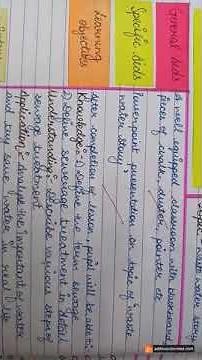 General Aids
A well equipped classroom with blackboard
pieces of chalk, duster, pointer etc
Specific Aids
Powerpoint presentation on topic of waste
water story
Learning
objectives
After completion of lesson pupil will be able to
Knowledge - 1) Define the term sewage
2) Define sewerage treatment in detail
Understanding - describe various steps of
sewage treatment
Application - Analyse the importance of water
and try save water in real life